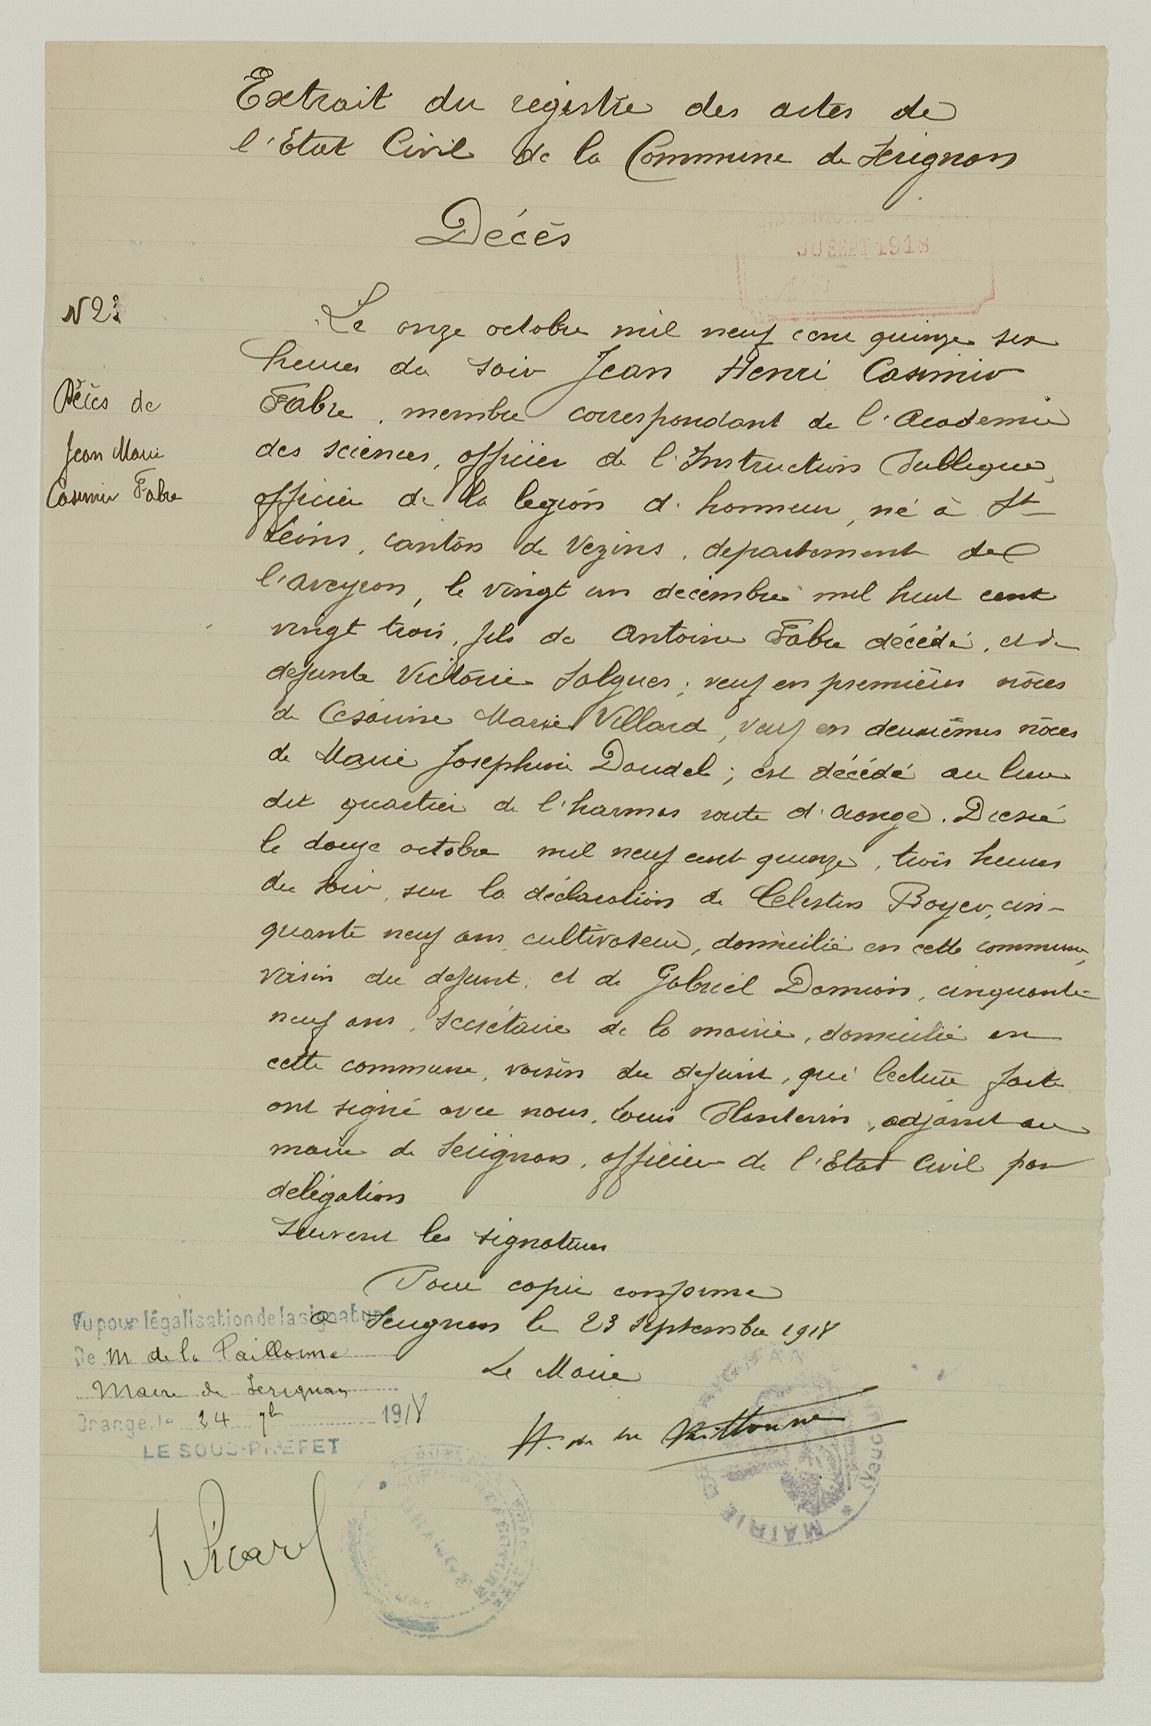 Extrait du registre des actes de
l'Etat Civil de la Commune de Serignan
Décès
30 SEPT 1918
N 23
Le onze octobre mil neuf cent quinze six
heures du soir Jean Henri Casimir
Décès de
Fabre, membre correspondant de l'Academie
Jean Marie
des sciences, officier de l'Instruction Publique,
Casimir Fabre
officier de la legion d'honneur, né à St
Léons, canton de Vezins, departement de
l'aveyron, le vingt un decembre mil huit cent
vingt trois, fils de Antoine Fabre décédé, et de
defunte Victoire Salgues; veuf en premières nôces
de Césarine Marie Villard, veuf en deuxièmes nôces
de Marie Josephine Daudel; est décédé au lieu
dit quartier de l'harmas route d'Orange. Dressé
le douze octobre mil neuf cent quinze, trois heures
du soir, sur la déclaration de Celestin Boyer, cin-
quante neuf ans, cultivateur, domicilié en cette commune,
voisin du defunt, et de Gabriel Damian, cinquante
neuf ans, secrétaire de la mairie, domicilié en
cette commune, voisin du defunt, qui lecture faite
ont signé avec nous, Louis adjoint au
maire de Sérignan, officier de l'Etat Civil par
délégation
Suivent les signatures
Pour copie conforme
A Serignan le 23 Septembre 1918
Le Maire
H. de la Paillonne
Vu pour légalisation de la signature
De M de la Paillonne
Maire de Serignan
Orange, le 24 7bre 1918
LE SOUS-PREFET
MAIRIE DE SÉRIGNAN (VAUCLUSE)